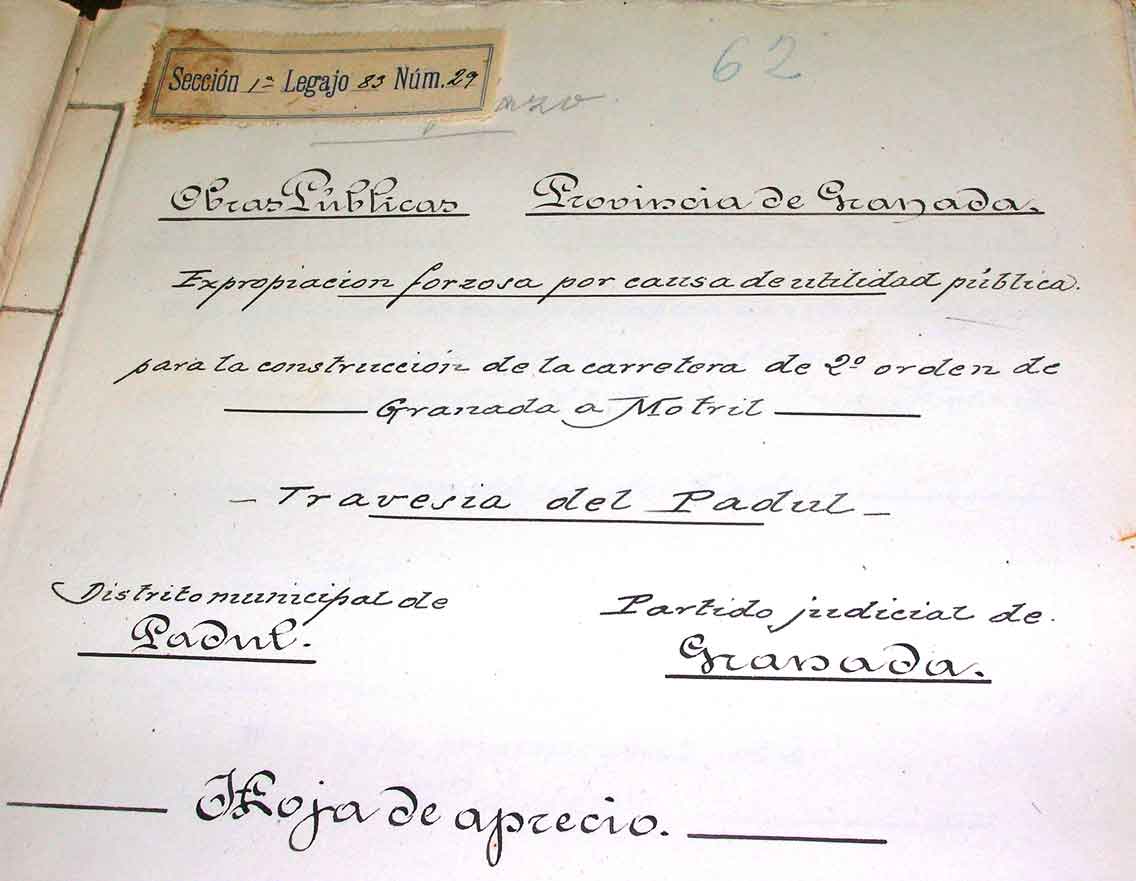 62
Sección 1ª Legajo 83 Núm. 29
Obras Públicas Provincia de Granada.
Expropiacion forzosa por causa de utilidad pública.
para la construcción de la carretera de 2º orden de
Granada a Motril
- Travesia del Padul -
Distrito municipal de Partido judicial de.
Padul. Granada.
Hoja de aprecio.